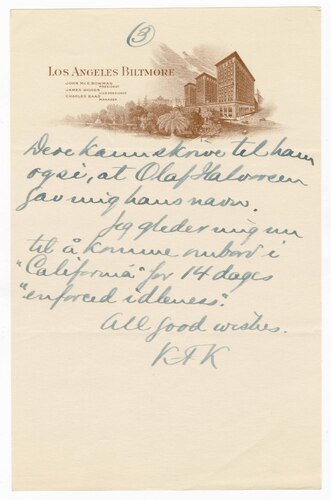 3
LOS ANGELES BILTMORE
JOHN McE. BOWMAN
PRESIDENT
JAMES WOODS
VICE-PRESIDENT
CHARLES BAAD
MANAGER
Dere kan skrive til ham
også, at Olaf Halvorsen
gav mig hans navn.
Jeg gleder mig nu
til å komme ombord i
"California" for 14 dages
"enforced idleness".
All good wishes.
KFK